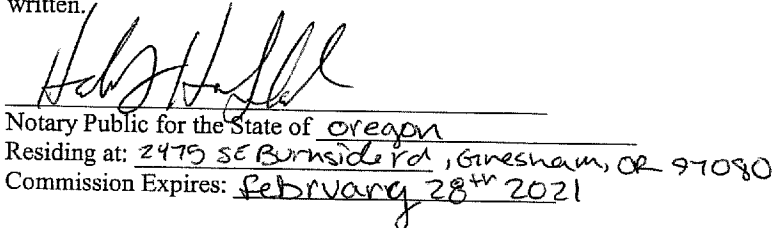 written.
Notary Public for the State of oregon
Residing at: 2475 SE Burnside rd, Gresham, OR 97080
Commission Expires: february 28th 2021